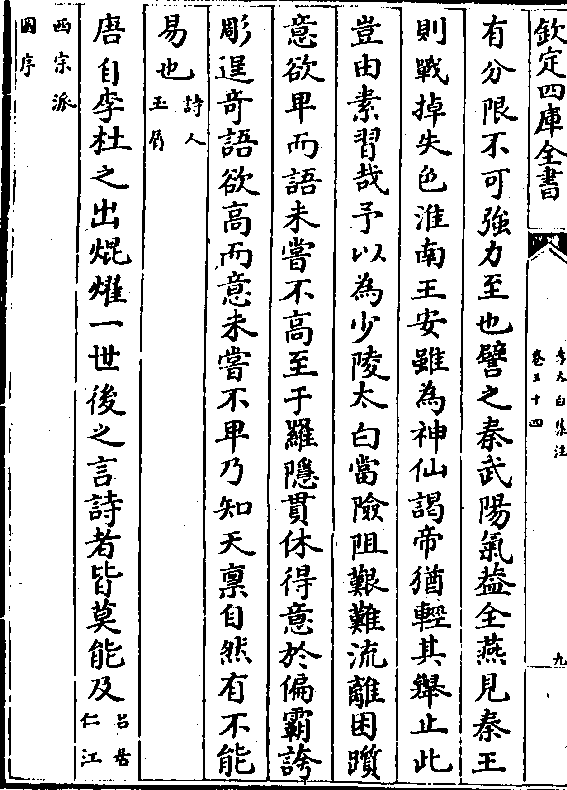 欽定四庫全書
李太白集注
卷三十四
九
有分限不可強力至也譬之秦武陽氣葢全燕見秦王
則戰掉失色淮南王安雖為神仙謁帝猶輕其舉止此
豈由素習哉予以為少陵太白當險阻艱難流離困躓
意欲卑而語未嘗不高至于羅隱貫休得意於偏霸誇
彫逞竒語欲高而意未嘗不卑乃知天禀自然有不能
易也
詩人
玉屑
唐自李杜之出焜燿一世後之言詩者皆莫能及
吕居
仁江
西宗派
圖序